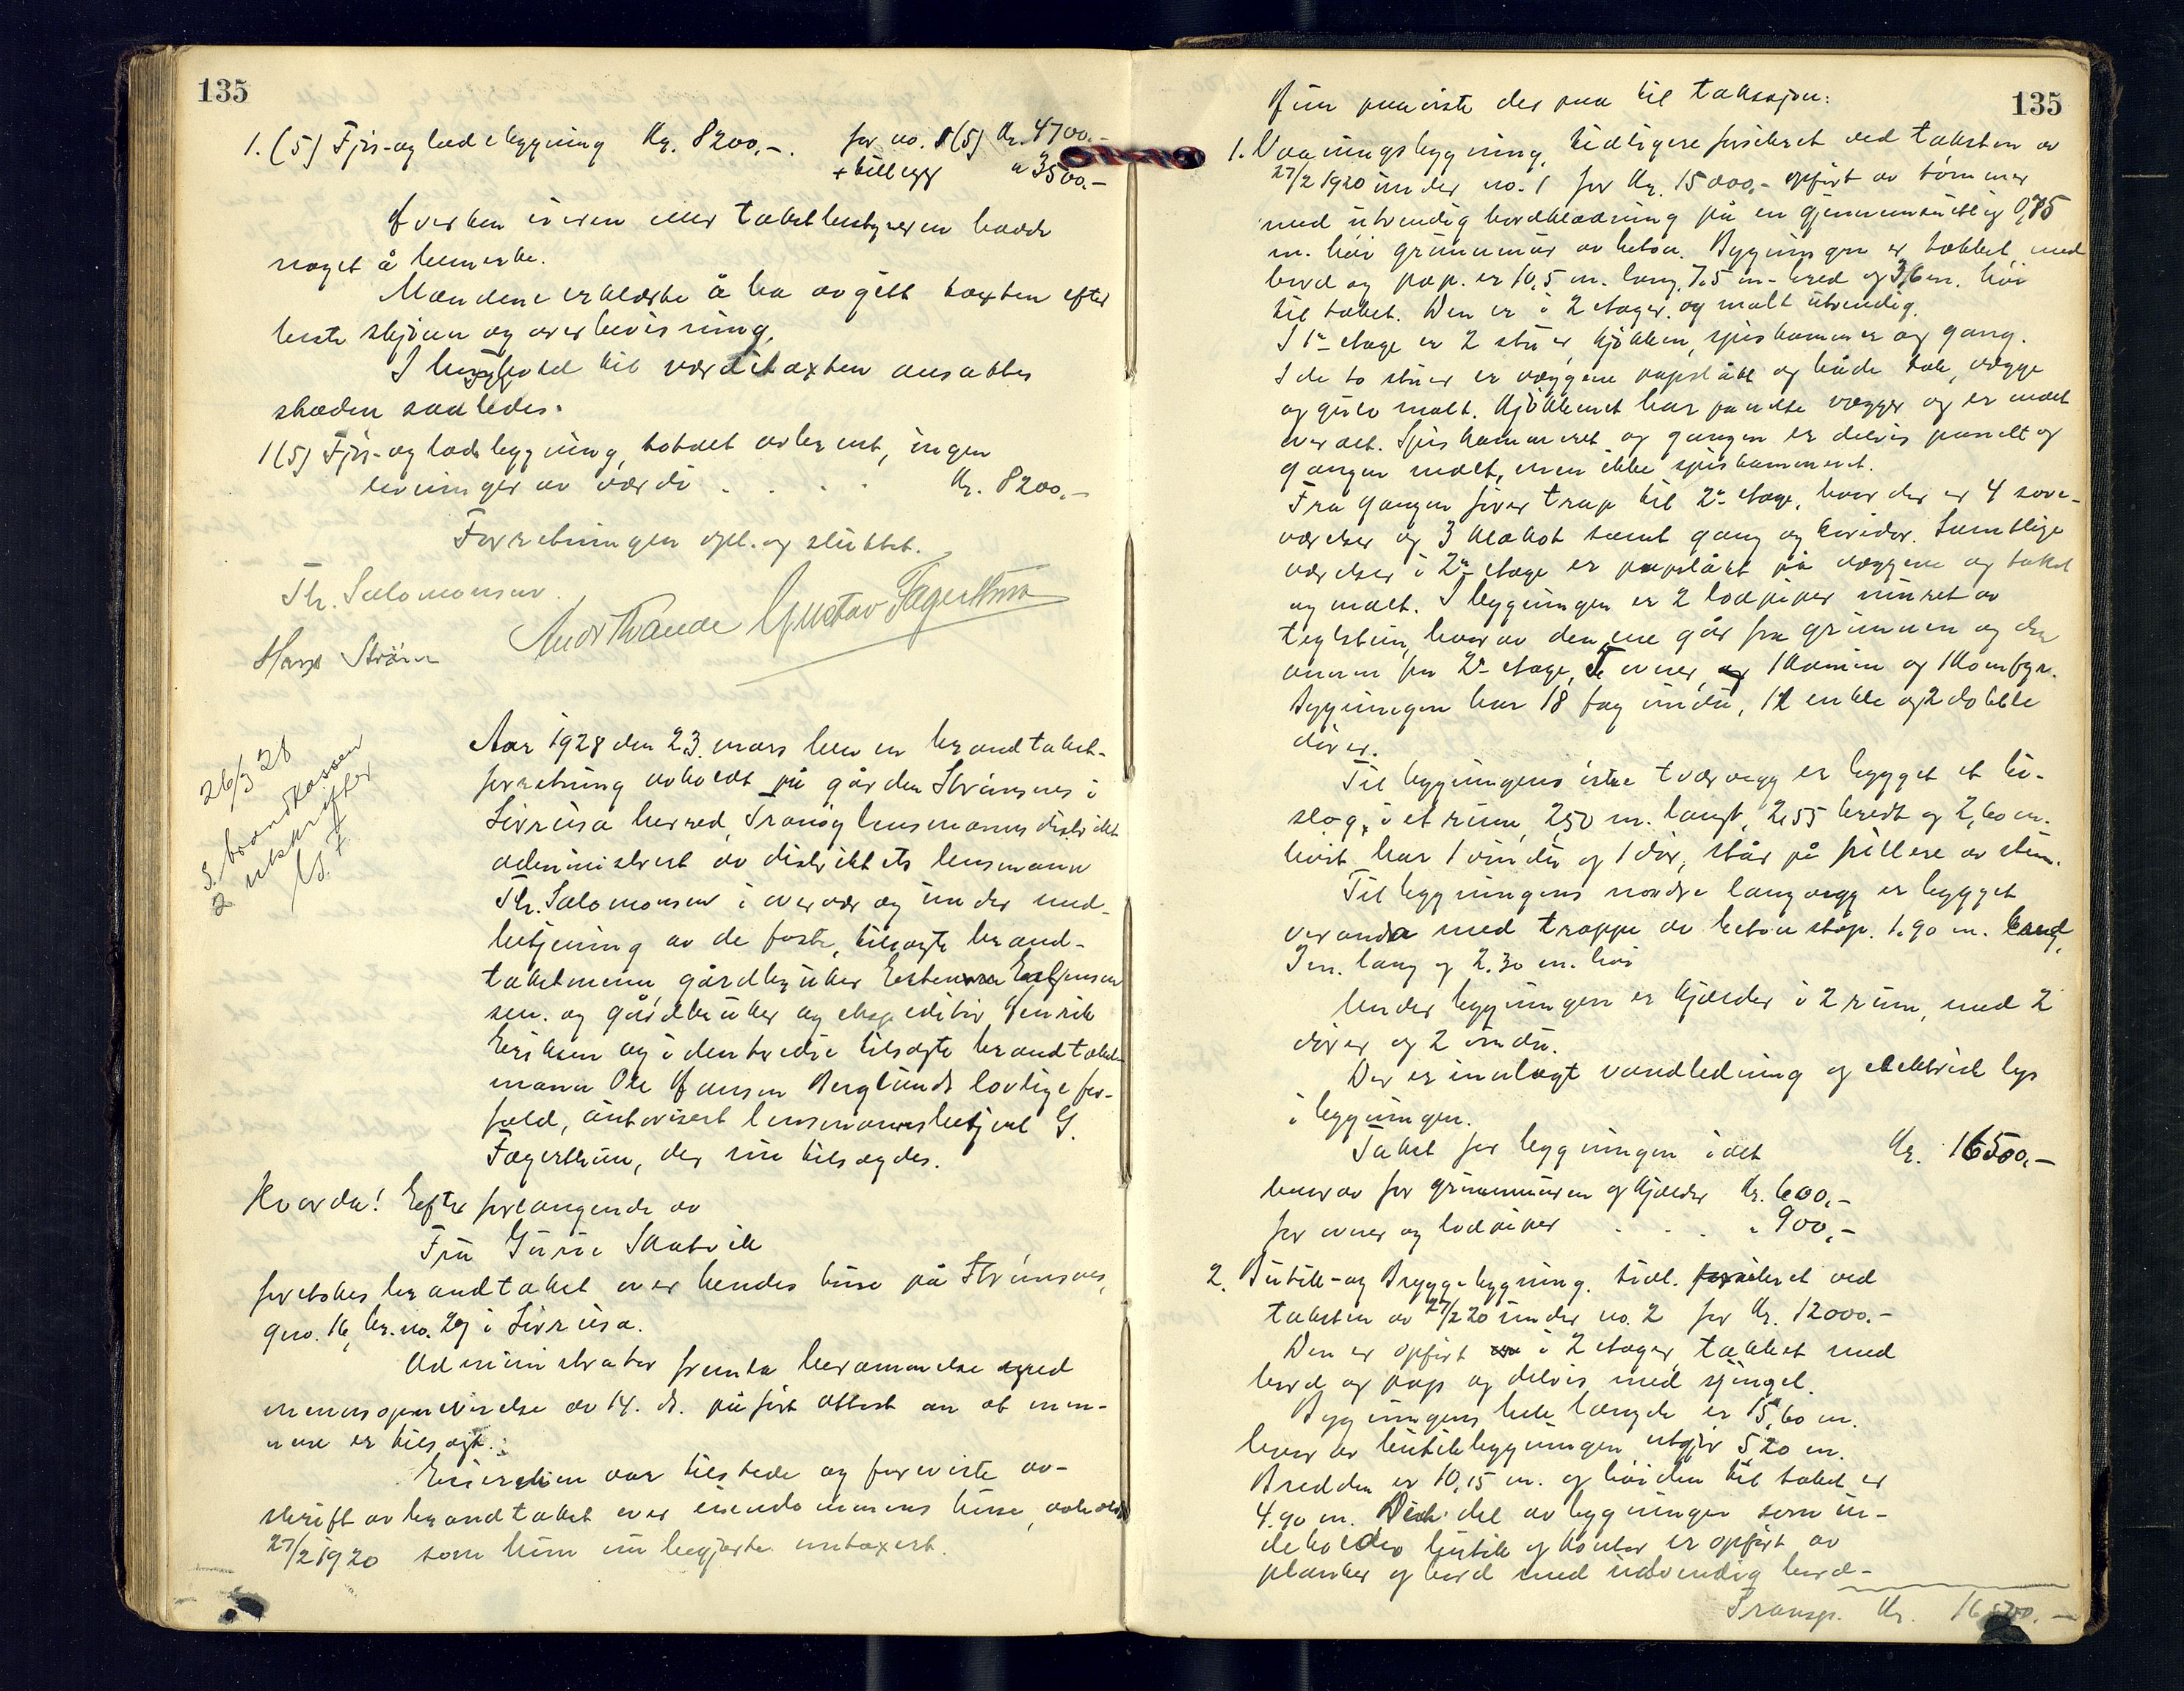 135
1. (5) Fjøs- og ladebygning Kr. 8200,-. før no. 1(5) Kr. 4700.-
+ tillegg " 3500.-
Hverken eieren eller takstbestyreren hadde
noget å bemerke.
Mændene erklærte å ha avgitt taxten efter
beste skjønn og overbevisning.
I henhold til værditaxten ansattes
skaden saaledes.
1(5) Fjøs- og ladebygning, totalt avbrent, ingen
levninger av værdi . . . . Kr. 8200,-
Forretningen opl. og sluttet.
Th. Salomonsen.
Hans Strøm
Gustav Fagerthun
26/3 28
2 utskrifter
G. F
Aar 1928 den 23. mars blev en brandtakst-
forretning avholdt på gården Strømsnes i
Sørreisa herred, Tranøy lensmannsdistrikt
administrert av distriktets lensmann
Th. Salomonsen i overvær og under med-
betjening av de faste, tilsagte brand-
takstmenn, gårdbruker
sen. og gårdbruker og ekspeditør Henrik
Eriksen og i den tredie tilsagte brandtakst-
mann Ole Hansen Berglunds lovlige for-
fald, autorisert lensmannsbetjent G.
Fagerthun, der nu tilsagdes.
Hvorda! Efter forlangende av
Fru Gurie Skatvik
foretokes brandtakst over hendes huse på Strømsnes,
gno. 16, br.no. 29 i Sørreisa.
Administrator fremla berammelse med
mennsopnevnelse av 14. ds. påført attest om at men-
nene er tilsagt.
Eierinden var tilstede og foreviste av-
skrift av brandtakst over eiendommens huse, avholdt
27/2 1920 som hun nu begjærte omtaxert.
135
Hun paaviste der paa til taksasjon:
1. Vaaningsbygning, tidligere forsikret ved taksten av
27/2 1920 under no. 1 for Kr. 15000,- opført av tømmer
med utvendig bordklædning på en gjennemsnitlig 0,75
m. høi grunnmur av beton. Bygningen er tækket med
bord og pap. er 10,5 m. lang, 7,5 m. bred og 3,6 m. høi
til taket. Den er i 2 etager. og malt utvendig.
I 1ste etage er 2 stuer, kjøkken, spiskammer og gang.
I de to stuer er væggene papslått og både tak, vægge
og gulv malt. Kjøkkenet har panelte vægger og er malt
overalt. Spiskammeret og gangen er delvis panelt og
gangen malt, men ikke spiskammeret.
Fra gangen fører trap til 2. etage, hvor der er 4 sove-
værelser og 3 klokot samt gang og koridor. Samtlige
værelser i 2. etage er papslått på væggene og taket
og malt. I bygningen er 2 lodpiper muret av
teglsten, hvorav den ene går fra grunnen og den
annen fra 2. etage, 5 ovner, 1 kamin og 1 komfyr.
Bygningen har 18 fag vindu, 12 enkle og 2 dobble
dører.
Til bygningens østre tværvegg er bygget et bi-
slag, i et rum, 2,50 m. langt, 2,55 bredt og 2,60 m.
høit. har 1 vindu og 1 dør, står på pillere av sten.
Til bygningens nordre langvegg er bygget
veranda med trappe av betonstøp. 1.90 m. bred,
3 m. lang og 2.30 m. høi
Under bygningen er kjælder i 2 rum, med 2
dører og 2 vindu.
Der er innlagt vandledning og elektrisk lys
i bygningen.
Takst for bygningen i alt Kr. 16500,-
herav for grunnmuren og kjælder Kr. 600,-
for ovner og lodpiper . . . " 900,-
2. Butik- og Bryggebygning. tidl. forsikret ved
taksten av 27/2 20 under no. 2 for Kr. 12000.-
Den er opført i 2 etager, tækket med
bord og pap og delvis med sjingel.
Bygningens hele længde er 15,60 m.
hvorav butikbygningen utgjør 5,20 m.
Bredden er 10,15 m. og høiden til taket er
4.90 m. Den del av bygningen som in-
deholder butik og kontor er opført av
planker og bord med utvendig bord-
Transp. Kr. 16500.-